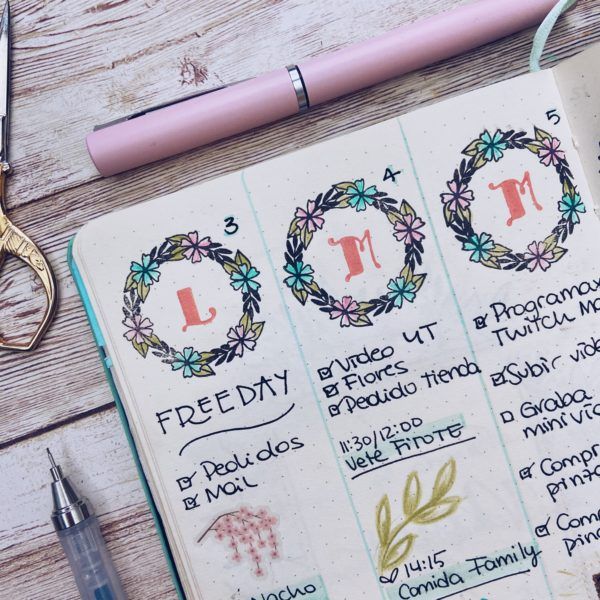 3
L
FREEDAY
Pedidos
Mail
Nacho
4
M
Video YT
Flores
Pedido tienda
11:30/12:00
Vete Firote
14:15
Comida Family
5
M
Programar
Twitch
Subir
Graba
mini